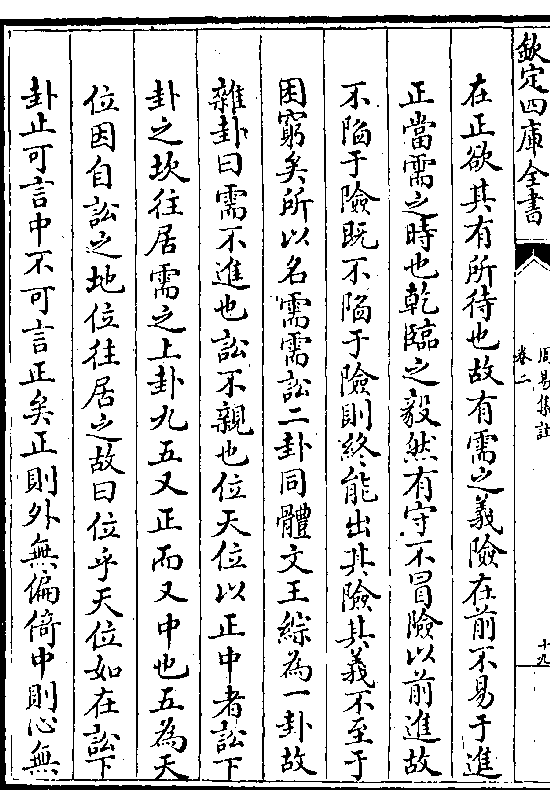 欽定四庫全書
周易集註
卷二
十九
在正欲其有所待也故有需之義險在前不易于進
正當需之時也乾臨之毅然有守不冒險以前進故
不陷于險既不陷于險則終能出其險其義不至于
困窮矣所以名需需訟二卦同體文王綜為一卦故
雜卦曰需不進也訟不親也位天位以正中者訟下
卦之坎往居需之上卦九五又正而又中也五為天
位因自訟之地位往居之故曰位乎天位如在訟下
卦止可言中不可言正矣正則外無偏倚中則心無